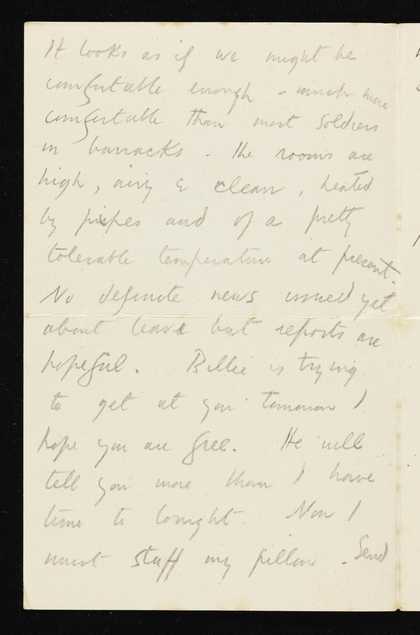 It looks as if we might be
comfortable enough - much more
comfortable than most soldiers
in barracks. The rooms are
high, airy & clean, heated
by pipes and of a pretty
tolerable temperature at present.
No definite news issued yet
about leave but reports are
hopeful. Billie is trying
to get at you tomorrow I
hope you are free. He will
tell you more than I have
time to tonight. Now I
must stuff my pillow. Send